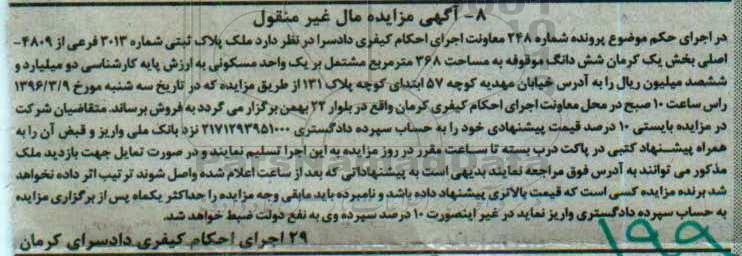 ۸- آگهی مزایده مال غیر منقول
در اجرای حکم موضوع پرونده شماره ۲۴۸ معاونت اجرای احکام کیفری دادسرا در نظر دارد ملک پلاک ثبتی شماره ۳۰۱۳ فرعی از ۴۸۰۹-
اصلی بخش یک کرمان شش دانگ موقوفه به مساحت ۳۶۸ مترمربع مشتمل بر یک واحد مسکونی به ارزش پایه کارشناسی دو میلیارد و
ششصد میلیون ریال را به آدرس خیابان مهدیه کوچه ۵۷ ابتدای کوچه پلاک ۱۳۱ از طریق مزایده که در تاریخ سه شنبه مورخ ۱۳۹۶/۳/۹
راس ساعت ۱۰ صبح در محل معاونت اجرای احکام کیفری کرمان واقع در بلوار ۲۲ بهمن برگزار می گردد به فروش برساند. متقاضیان شرکت
در مزایده بایستی ۱۰ درصد قیمت پیشنهادی خود را به حساب سپرده دادگستری ۲۱۷۱۲۹۳۹۵۱۰۰۰ نزد بانک ملی واریز و قبض آن را به
همراه پیشنهاد کتبی در پاکت درب بسته تا ساعت مقرر در روز مزایده به این اجرا تسلیم نمایند و در صورت تمایل جهت بازدید ملک
مذکور می توانند به آدرس فوق مراجعه نمایند بدیهی است به پیشنهاداتی که بعد از ساعت اعلام شده واصل شوند ترتیب اثر داده نخواهد
شد برنده مزایده کسی است که قیمت بالاتری پیشنهاد داده باشد و نامبرده باید مابقی وجه مزایده را حداکثر یکماه پس از برگزاری مزایده
به حساب سپرده دادگستری واریز نماید در غیر اینصورت ۱۰ درصد سپرده وی به نفع دولت ضبط خواهد شد.
۲۹ اجرای احکام کیفری دادسرای کرمان
۱۹۹